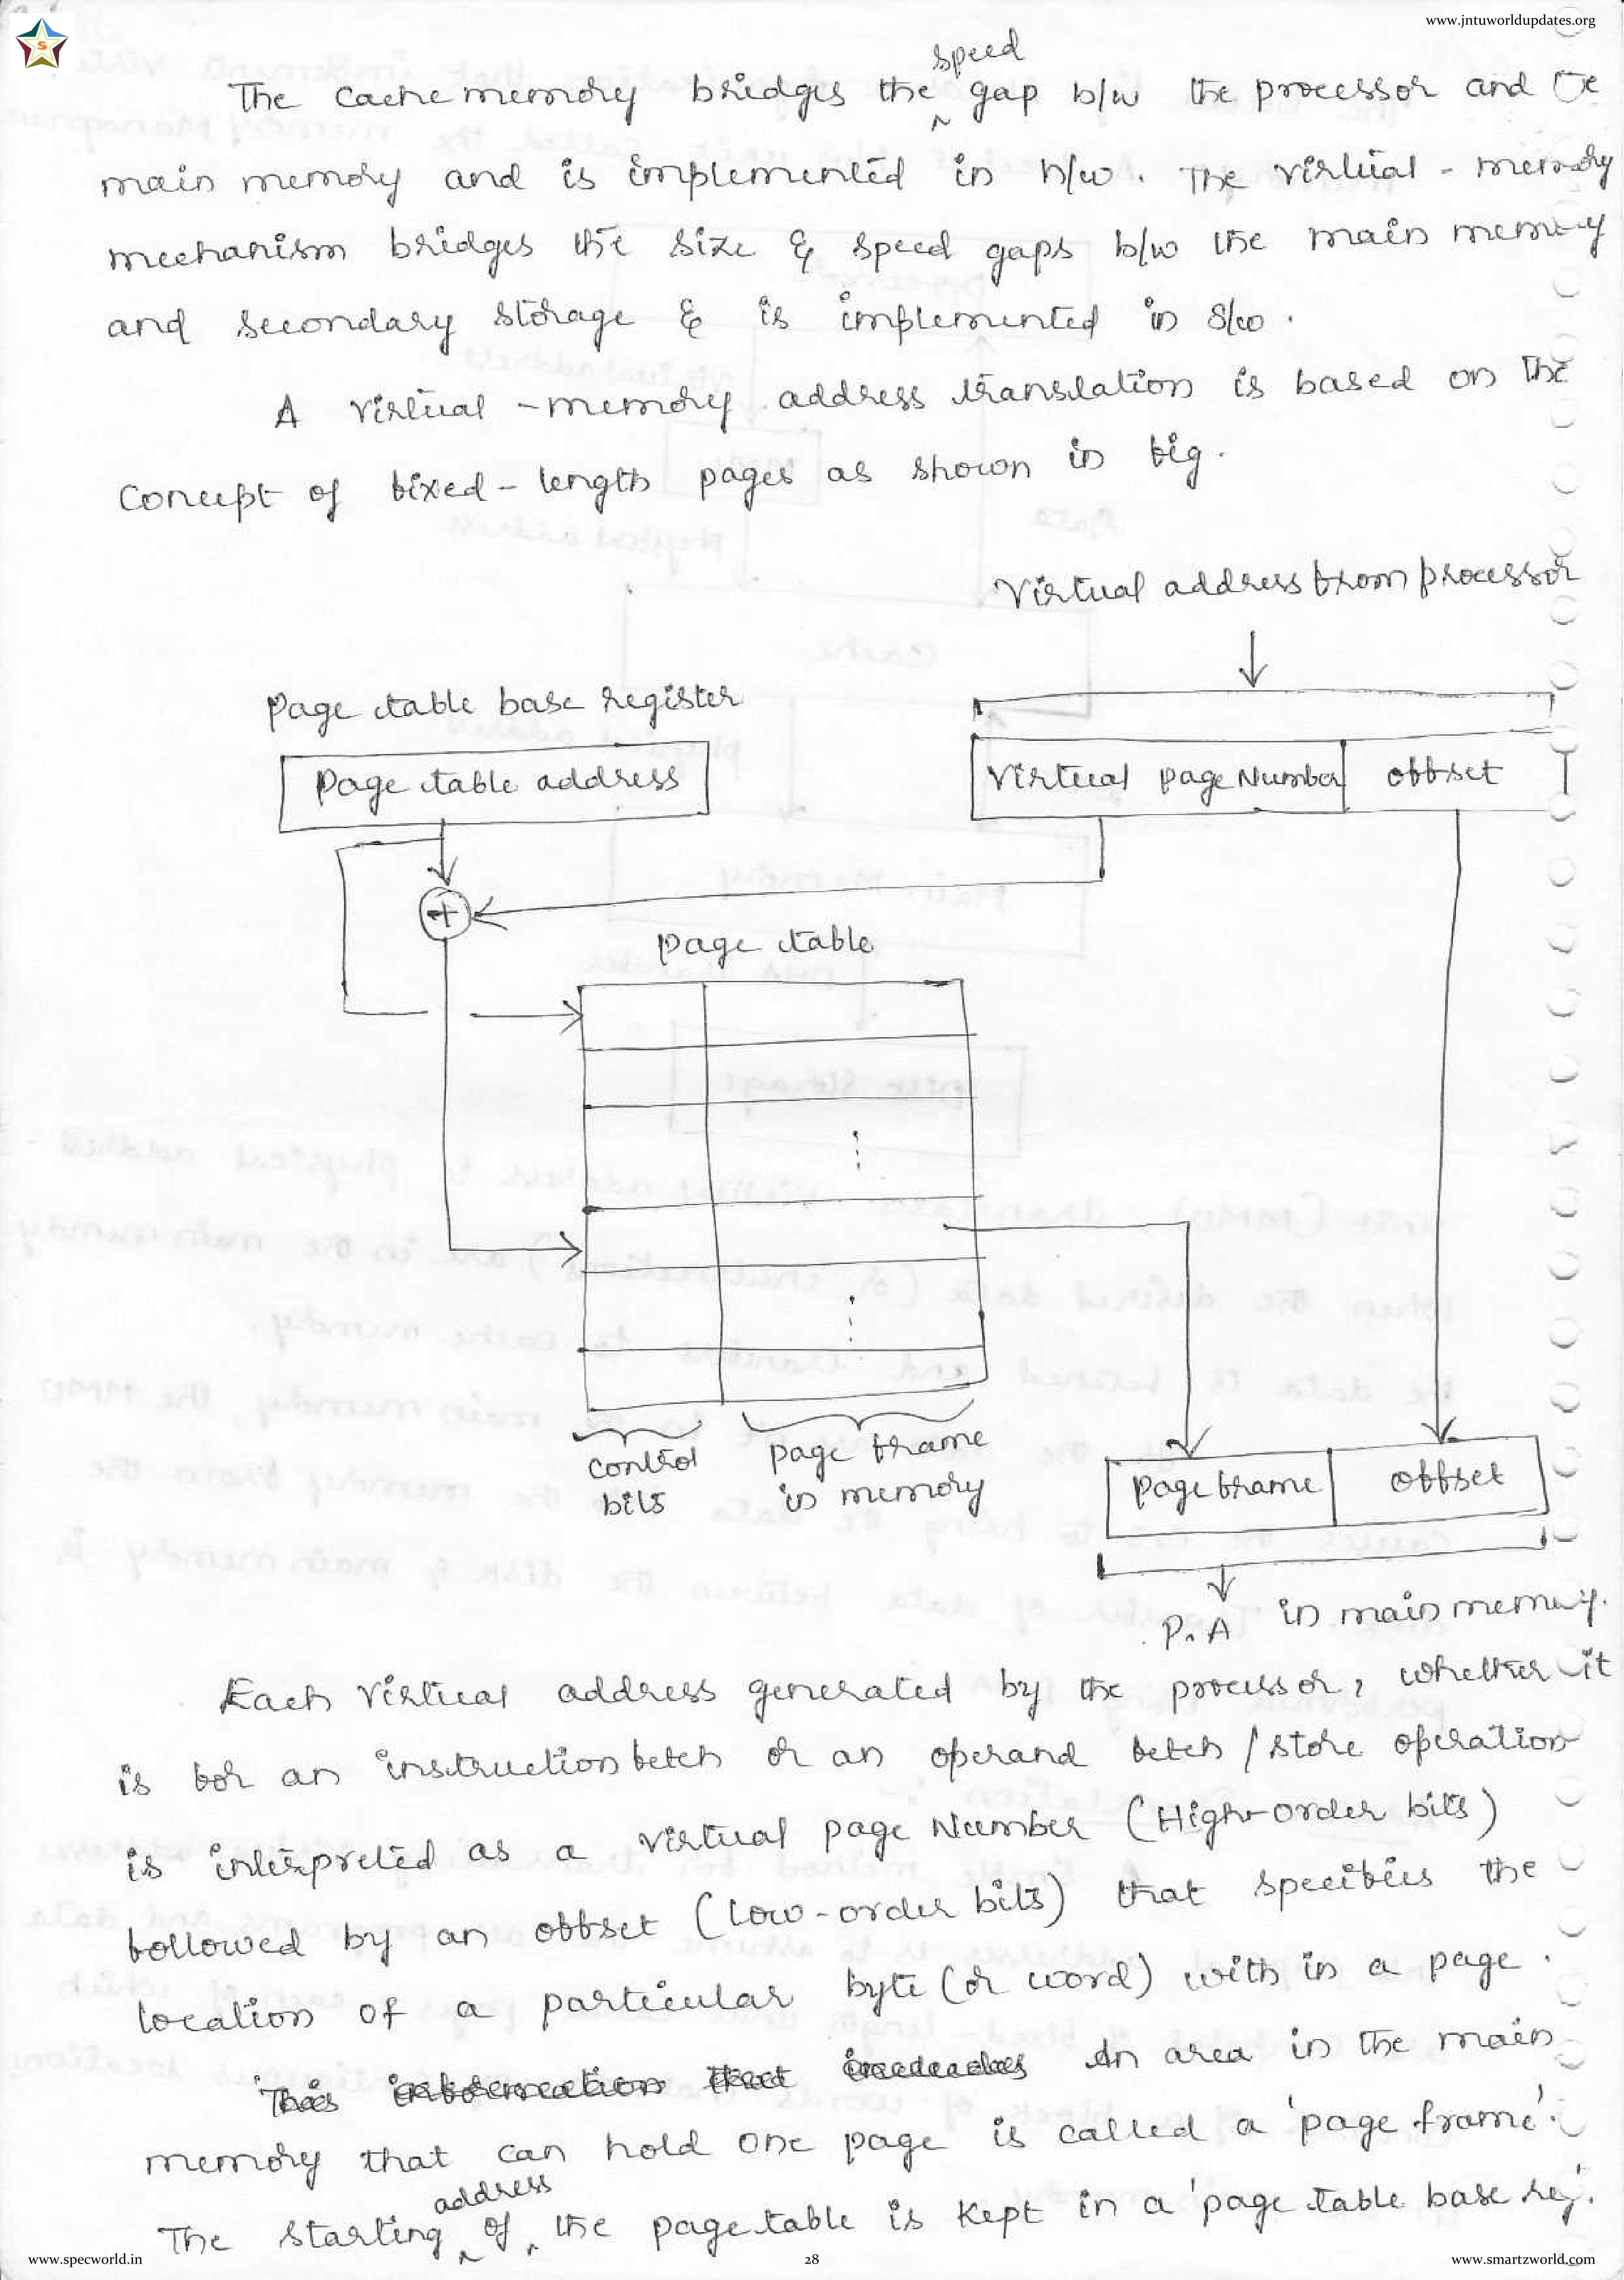 www.jntuworldupdates.org
S
The cache memory bridges the speed gap b/w the processor and the
main memory and is implemented in h/w. The virtual - memory
mechanism bridges the size & speed gaps b/w the main memory
and secondary storage & is implemented in s/w.
A virtual - memory address translation is based on the
concept of fixed - length pages as shown in fig.
Virtual address from processor
Page table base register
Page table address
Virtual page Number
offset
+
page table
control
bits
page frame
in memory
page frame
offset
P.A in main memory.
Each virtual address generated by the processor, whether it
is for an instruction fetch or an operand fetch / store operation
is interpreted as a virtual page Number (High-order bits)
followed by an offset (low-order bits) that specifies the
location of a particular byte (or word) with in a page.
An area in the main
memory that can hold one page is called a 'page frame'.
The starting address of the page table is kept in a 'page table base reg'.
www.specworld.in
28
www.smartzworld.com